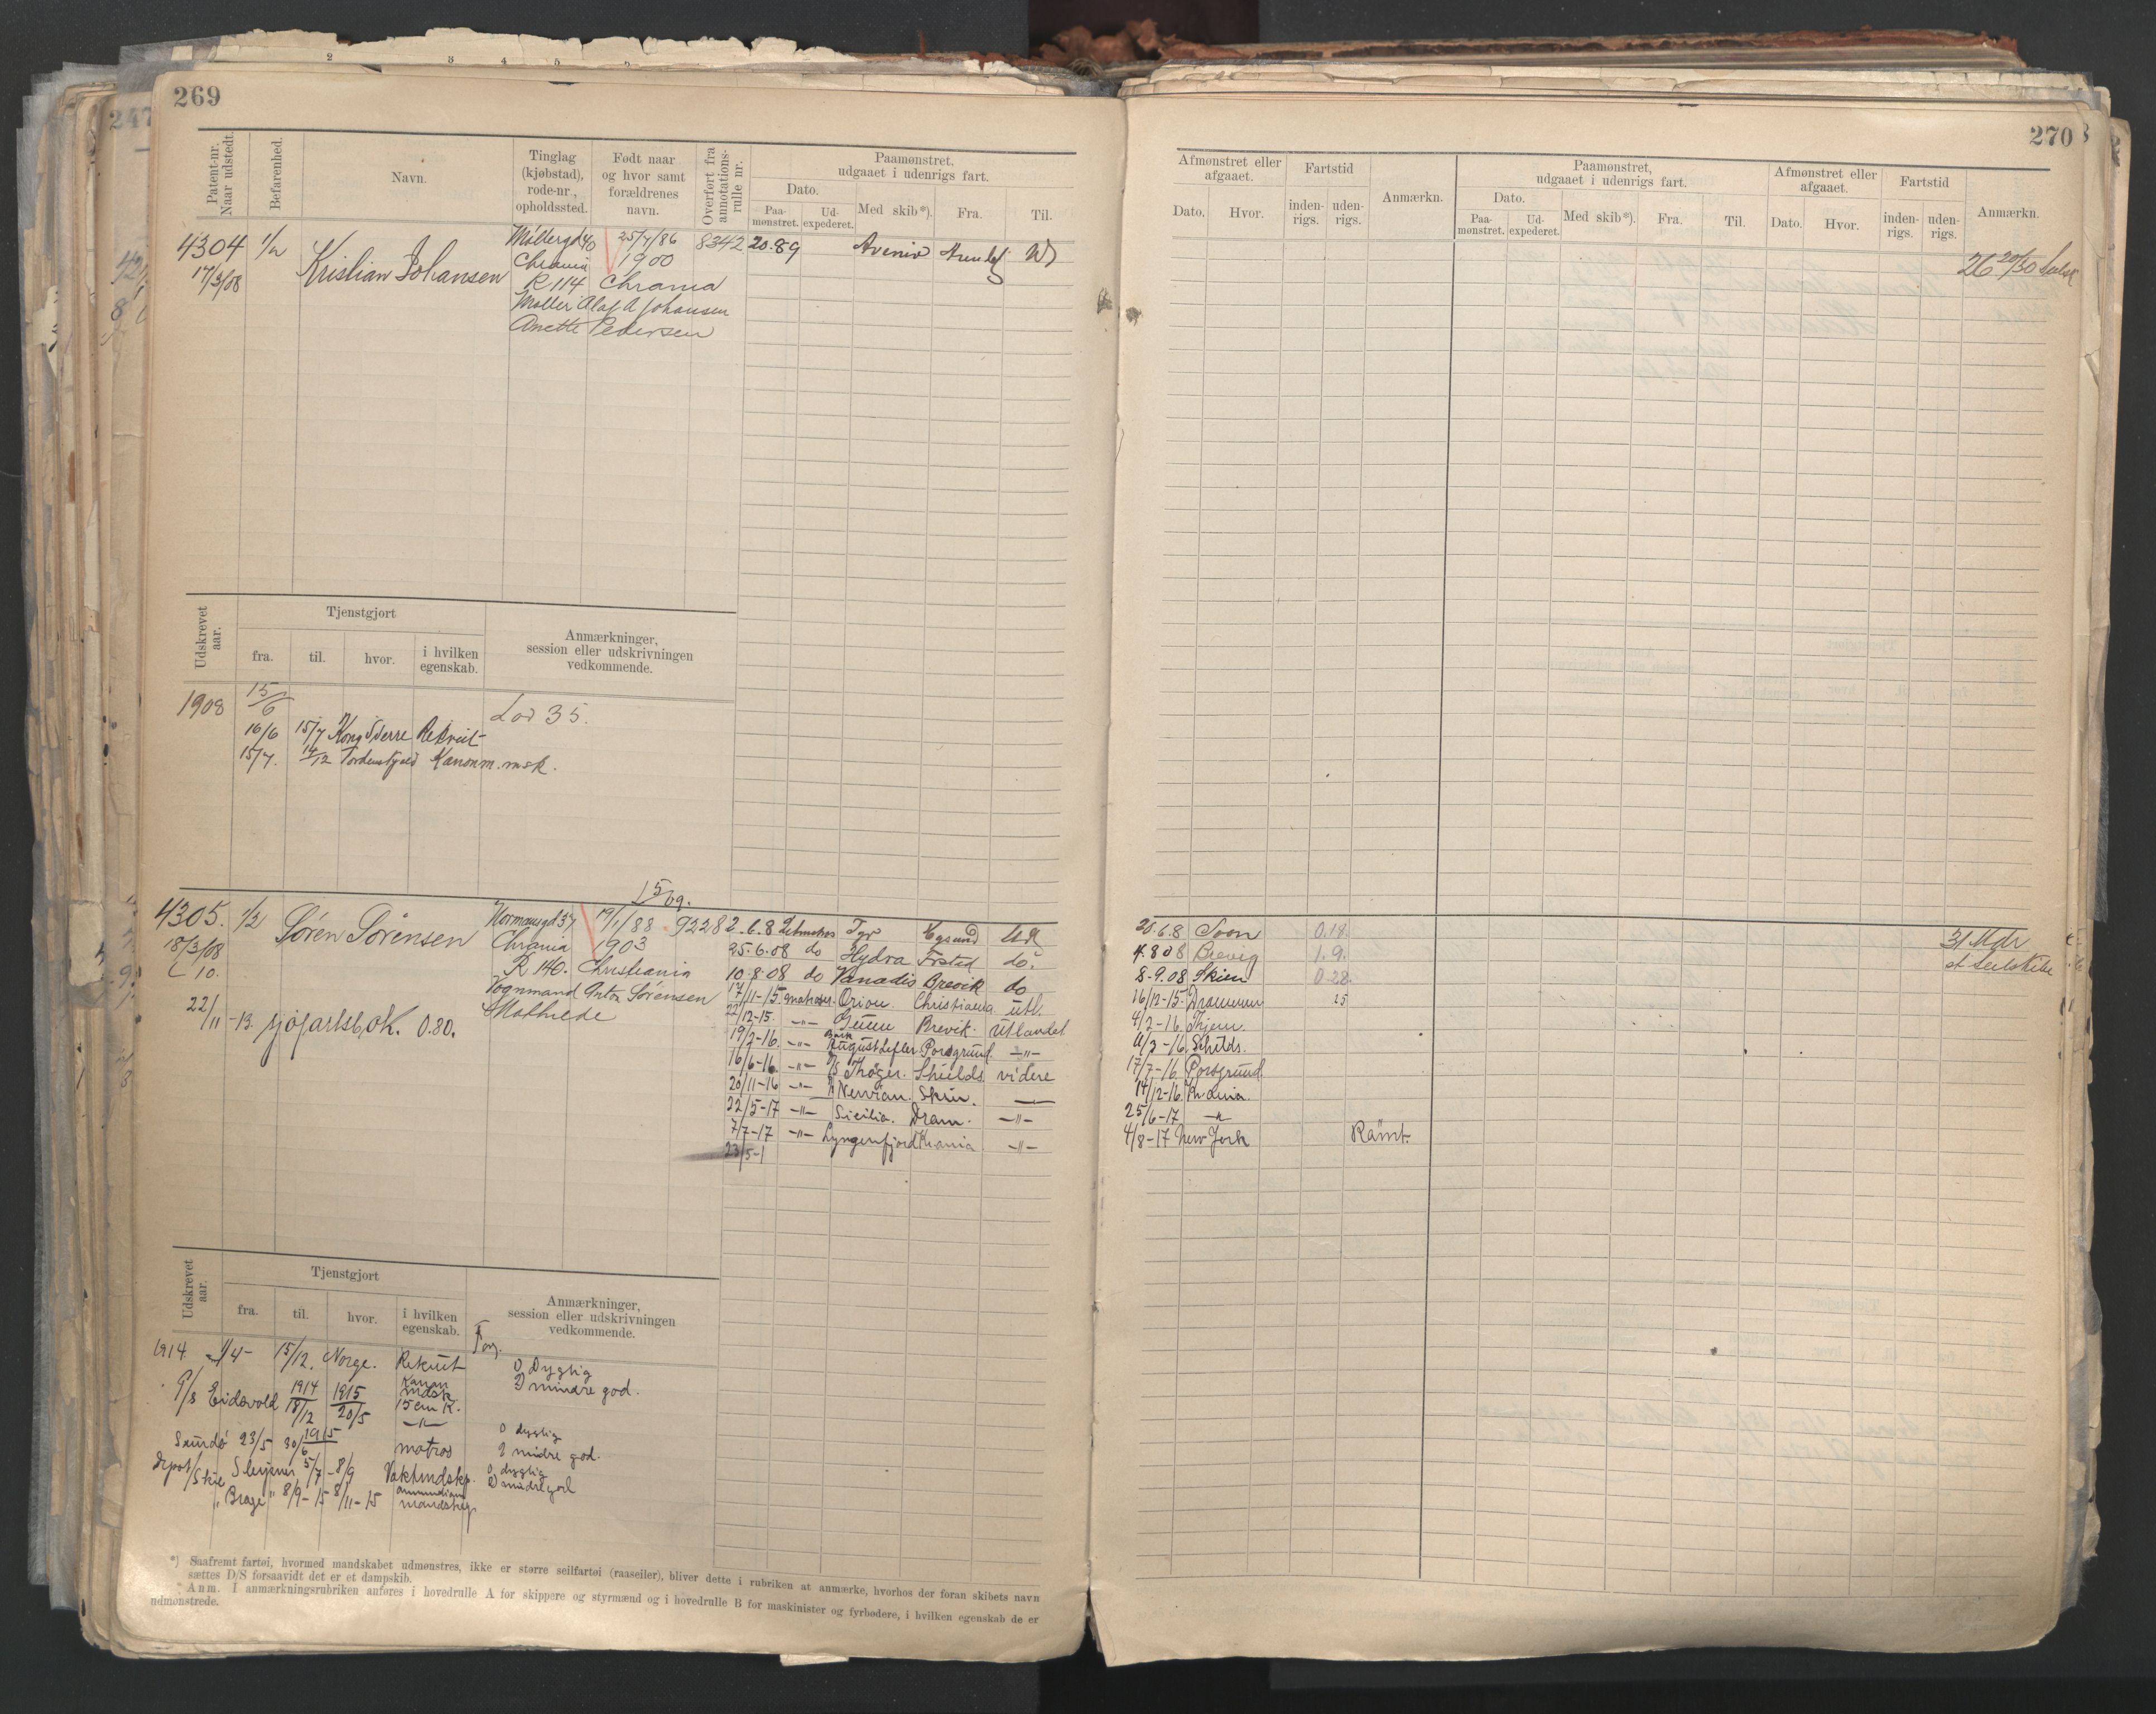 269
Patent-nr. Naar udstedt.
Befarenhed.
Navn.
Tinglag (kjøbstad), rode-nr., opholdssted.
Født naar og hvor samt forældrenes navn.
Overført fra annotations-rulle nr.
Paamønstret, udgaaet i udenrigs fart.
Dato.
Paa-mønstret.
Ud-expederet.
Med skib*).
Fra.
Til.
4304 1/2 Kristian Johansen
17/3/08
Chrania 1900
R 114 Chrania
Møller Olaf A Johansen
Anette Pedersen
25/4/86 8342 20.8.9
Udskrevet aar.
Tjenstgjort
fra.
til.
hvor.
i hvilken egenskab.
Anmærkninger, session eller udskrivningen vedkommende.
1908 15/6 Lod 35.
16/6 15/7 Kong Sverre Rekrut
15/7. 14/12 Tordenskjold Kanonm. msk.
15/09.
4305. 1/2 Sørén Sörensen
18/3/08
22/11-13 Sjøfartsbok. 0.80.
Normansgd 37 19/1/88 9228
Chrania 1903
R 140. Christiania
Vognmand Anton Sörensen
Mathilde
2.6.8 Tyr Egsund
25.6.08 do Hydra Frstad do
10.8.08 do Vanadis Brevik do
17/11-15. matros. Orion. Christiania utl.
22/12-15. -"- Brevik. Utlandet
19/2-16. -"- Bark August Lefler. Porsgrund. -"-
16/6-16. -"- Thøger. Shields. videre
20/11-16 -"- Skien.
22/5-17 -"- Sicilia. Dram. -"-
7/7-17 -"- Lyngenfjord Krania -"-
23/5-1
Udskrevet aar.
Tjenstgjort
fra.
til.
hvor.
i hvilken egenskab.
Anmærkninger, session eller udskrivningen vedkommende.
1914 1/4- 15/12. Norge. Rekrut 0 Dyglig
P/s Eidsvold 1914 18/12 1915 20/5 Kanon mdsk 15 cm K. 2) mindre god.
23/5 30/6 1915 matros 0 dyglig
2 mindre god.
Sleipner 5/7-8/9 0 dyglig
"Brage" 8/9-15 8/11-15 mandskap 2) mindre god
*) Saafremt fartøi, hvormed mandskabet udmønstres, ikke er større seilfartøi (raaseiler), bliver dette i rubriken at anmærke, hvorhos der foran skibets navn
sættes D/S forsaavidt det er et dampskib.
Anm. I anmærkningsrubriken anføres i hovedrulle A for skippere og styrmænd og i hovedrulle B for maskinister og fyrbødere, i hvilken egenskab de er
udmønstrede.
270
Afmønstret eller afgaaet.
Dato.
Hvor.
Fartstid
inden-rigs.
uden-rigs.
Anmærkn.
Paamønstret, udgaaet i udenrigs fart.
Dato.
Paa-mønstret.
Ud-expederet.
Med skib*).
Fra.
Til.
Afmønstret eller afgaaet.
Dato.
Hvor.
Fartstid
inden-rigs.
uden-rigs.
Anmærkn.
20.6.8 Soon 0.18.
4.8.08 Brevig 1.9.
8.9.08 Skien 0.28.
16/12-15. Drammen 25
4/2-16.
Shilds.
17/7-16. Porsgrund
14/12-16. Kr.ania.
25/6-17 -"-
4/8-17 New York Rømt.
31 Mdr